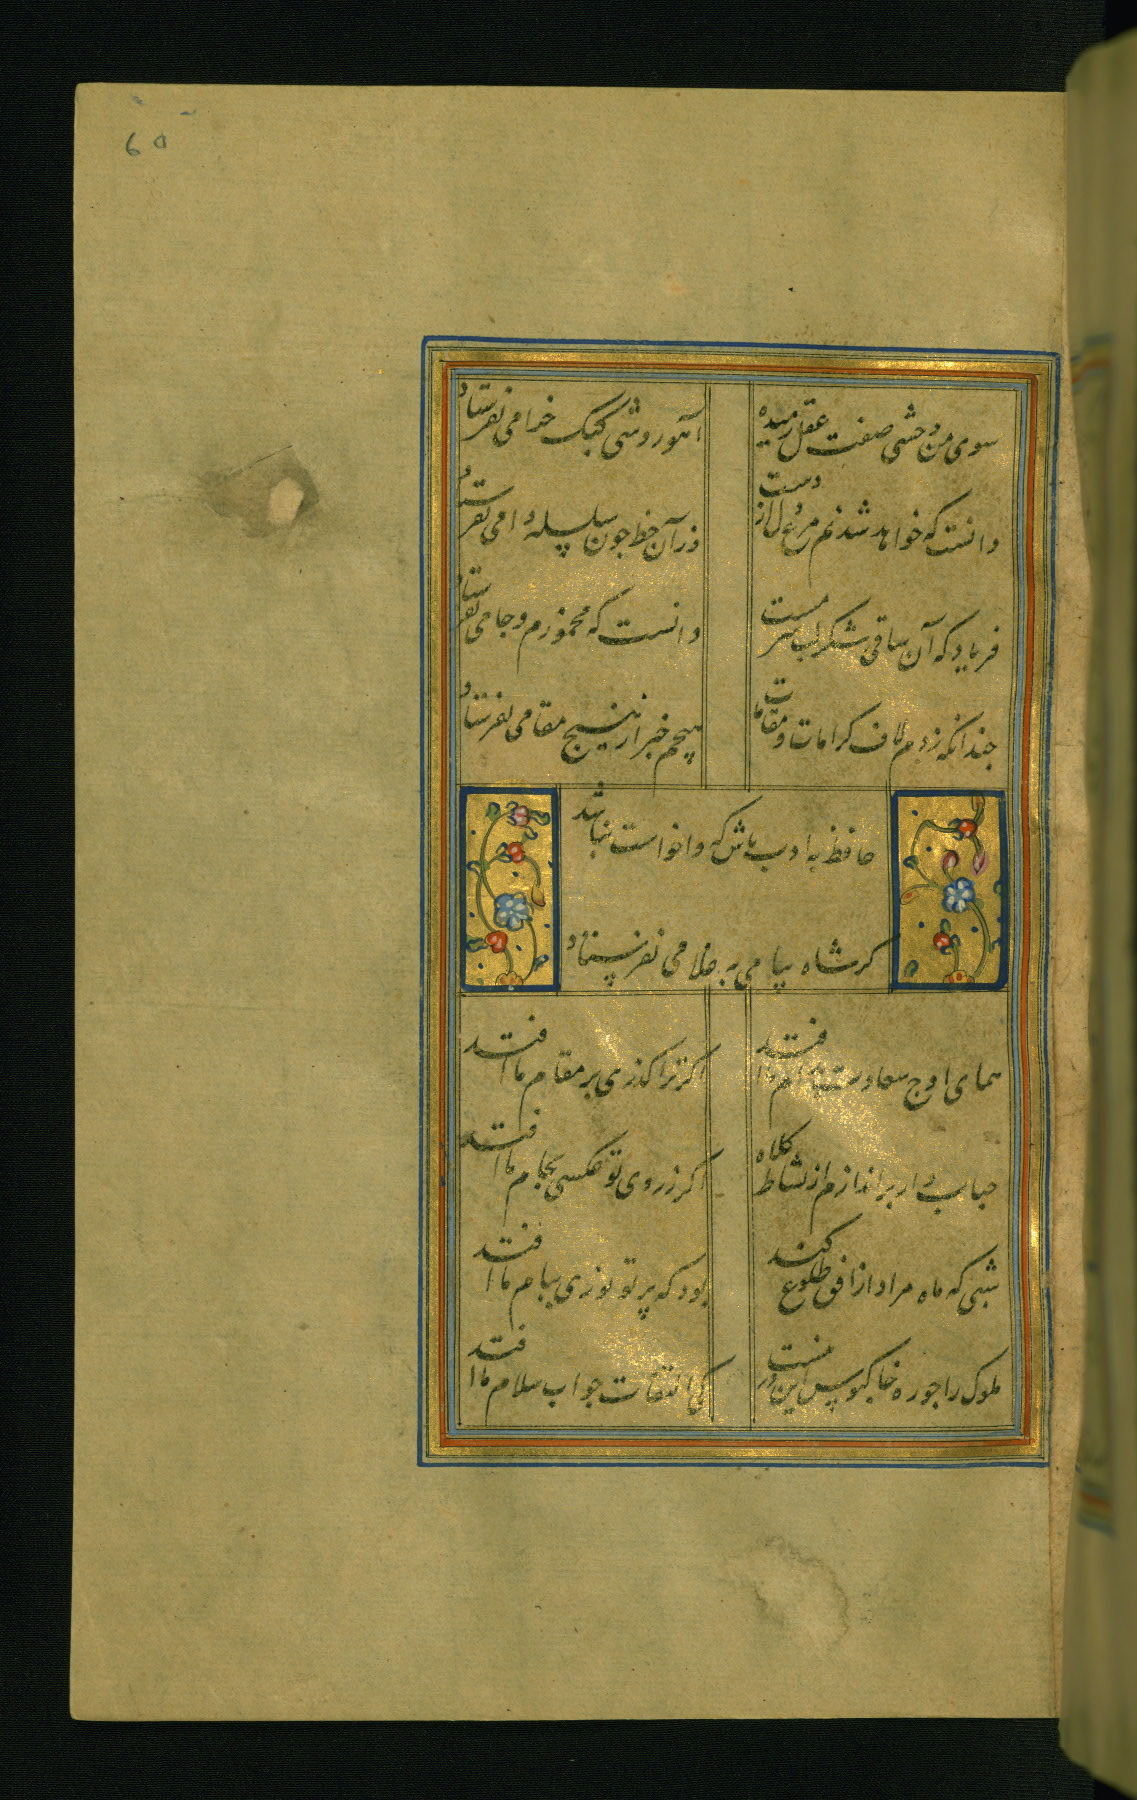 ۶۵
سوی من وحشی صفت عقل رمیده
آهو روشی کبک خرامی نفرستاد
دانست که خواهد شدنم مرغ دل از دست
وز آن خط چون سلسله دامی نفرستاد
فریاد که آن ساقی شکر لب سرمست
دانست که مخمورم و جامی نفرستاد
چندانکه زدم لاف کرامات و مقامات
هیچم خبر از هیچ مقامی نفرستاد
حافظ به ادب باش که واخواست نباشد
کر شاه پیامی به غلامی نفرستاد
همای اوج سعادت بدام ما افتد
اکر ترا کذری بر مقام ما افتد
حباب وار براندازم از نشاط کلاه
اکر ز روی تو عکسی بجام ما افتد
شبی که ماه مراد از افق طلوع کند
بود که پرتو نوری ببام ما افتد
ملوک را چو ره خاکبوس این در نیست
کی التفات جواب سلام ما افتد